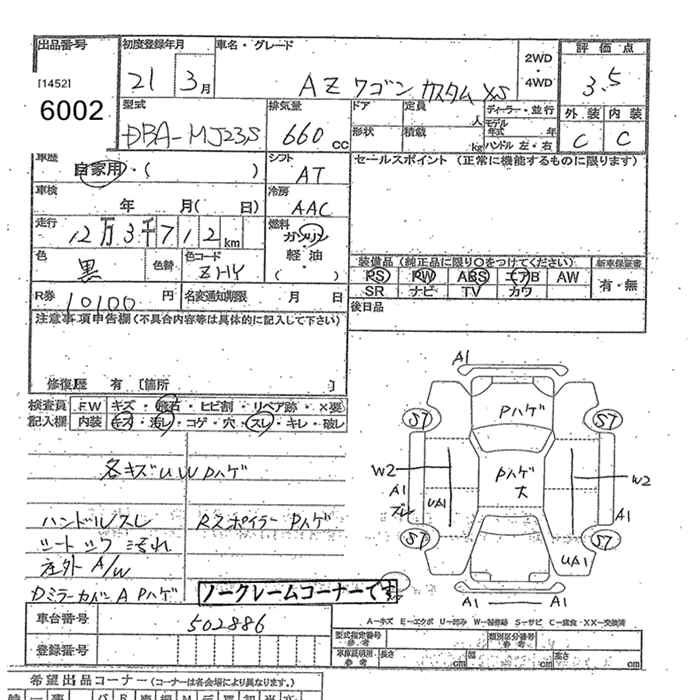 出品番号 初度登録年月 車名・グレード 2WD・4WD 評価点
[1452] 21 3月 AZワゴン カスタム XS 3.5
6002 型式 排気量 ドア 定員 人 ディーラー・並行 外装 内装
DBA-MJ23S 660cc 形状 積載 kg モデル年式 年 C C
ハンドル 左・右
車歴 シフト セールスポイント (正常に機能するものに限ります)
自家用・( ) AT
車検 冷房
年 月( 日) AAC
走行 燃料
12万3千712km ガソリン
色 色替 色コード 軽・油 装備品 (純正品に限り○をつけてください) 新車保証書
黒 ZHY ( ) PS PW ABS エアB AW 有・無
R券 円 名変通知期限 月 日 SR ナビ TV カワ
10100 後日品
注意事項申告欄 (不具合内容等は具体的に記入して下さい)
修復歴 有 [箇所
検査員 FW キズ・飛石・ヒビ割・リペア跡・×要
記入欄 内装 キズ・汚レ・コゲ・穴・スレ・キレ・破レ
各キズUW Pハゲ
ハンドルスレ Rスポイラー Pハゲ
シート シワ 汚れ
社外 A/W
DミラーカバーA Pハゲ
ノークレームコーナーです
A1
Pハゲ
S7 S7
W2 Pハゲ大 W2
A1 ズレ UA1 A1
S7 S7
UA1
A1 A1
A-キズ E-エクボ U-凹み W-補修跡 S-サビ C-腐食 ・XX-交換済
車台番号 502886 型式指定番号 参考 類別区分番号 参考
登録番号 車庫証明用 参考 長さ cm 幅 cm 高さ cm
希望出品コーナー (コーナーは各会場により異なります。)